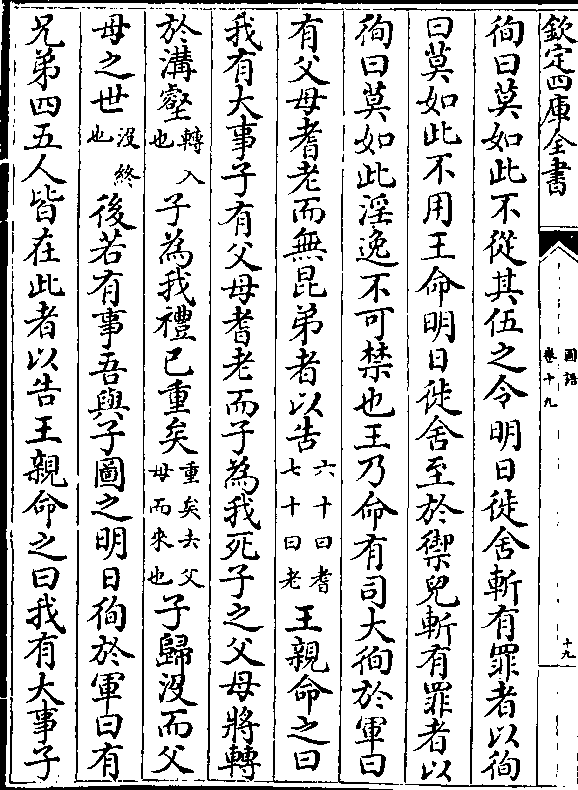 欽定四庫全書
國語
卷十九
十九
徇曰莫如此不從其伍之令明日徙舍斬有罪者以徇
曰莫如此不用王命明日徙舍至於禦兒斬有罪者以
徇曰莫如此淫逸不可禁也王乃命有司大徇於軍曰
有父母耆老而無昆弟者以告六十曰耆七十曰老王親命之曰
我有大事子有父母耆老而子為我死子之父母將轉
於溝壑轉入也子為我禮已重矣重矣去父母而來也子歸沒而父
母之世沒終也後若有事吾與子圖之明日徇於軍曰有
兄弟四五人皆在此者以告王親命之曰我有大事子